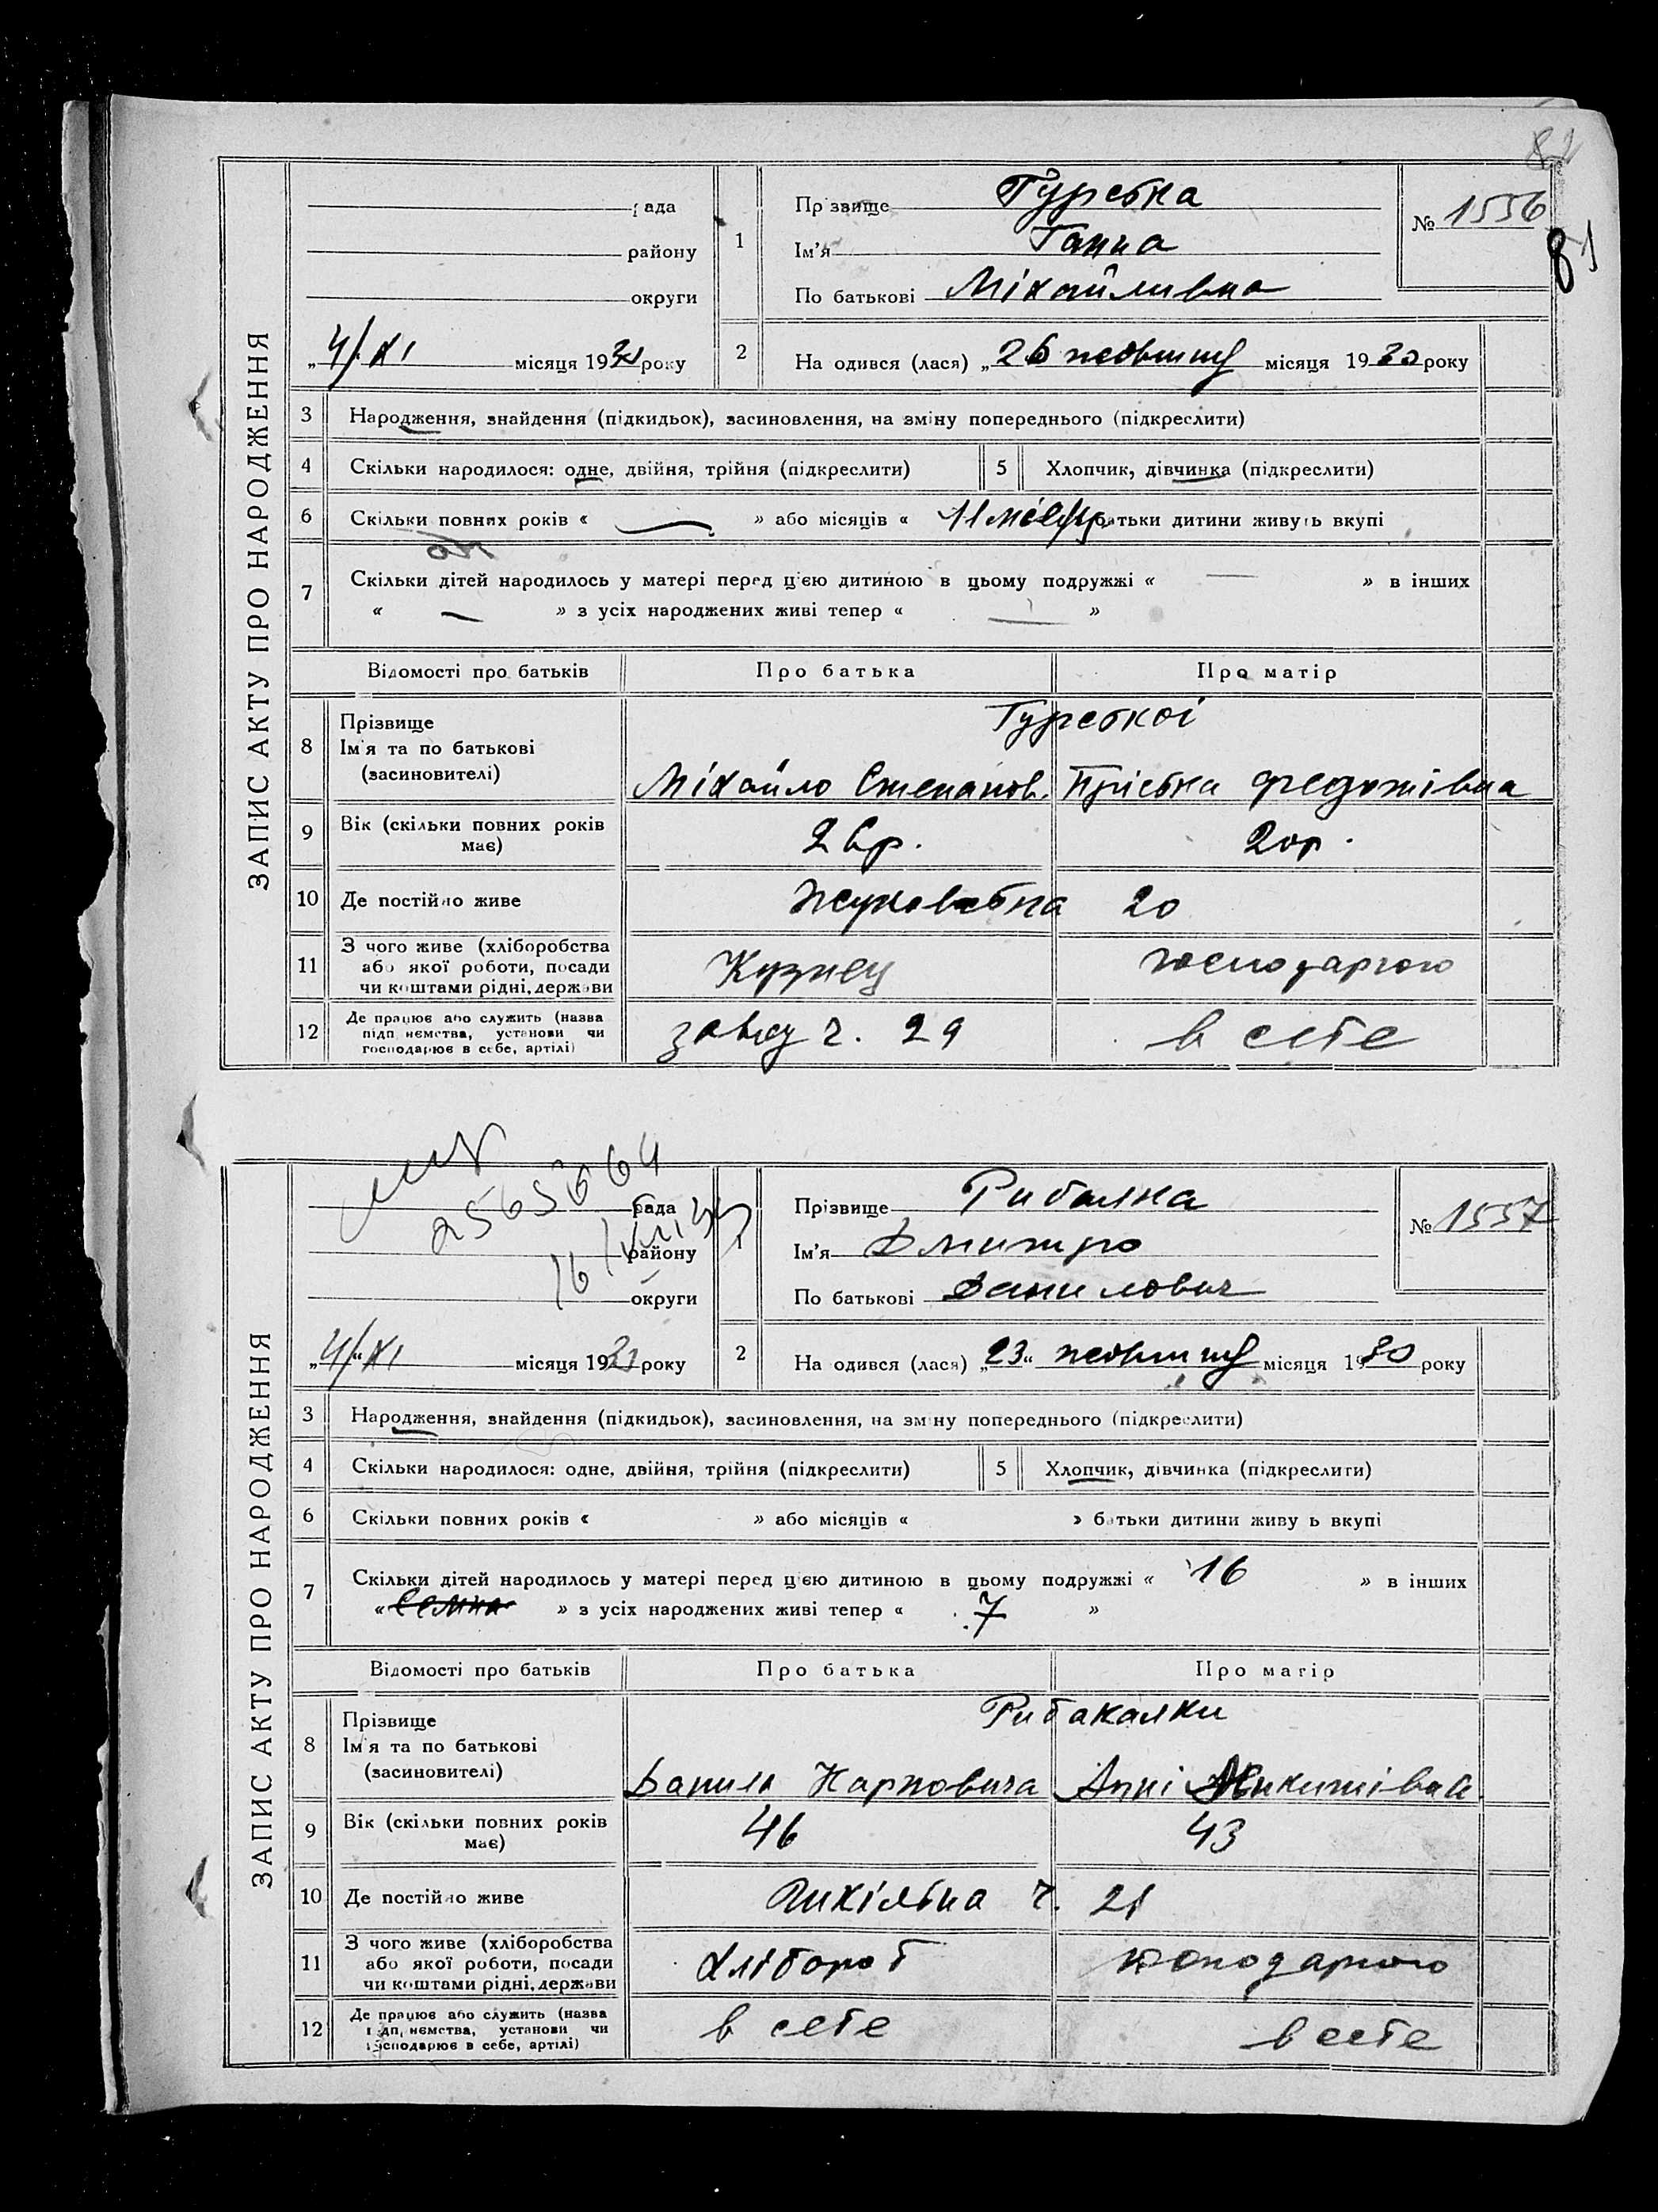 82
81
ЗАПИС АКТУ ПРО НАРОДЖЕННЯ
рада
району
округи
„4/XI місяця 1930 року
1
Прізвище Турська
Ім'я Ганна
По батькові Міхайливна
№ 1556
2
На одився (лася) „26 жовтня місяця 1930 року
3 Народження, знайдення (підкидьок), засиновлення, на зміну попереднього (підкреслити)
4 Скільки народилося: одне, двійня, трійня (підкреслити)
5 Хлопчик, дівчинка (підкреслити)
6 Скільки повних років « — » або місяців « 11 місяц. батьки дитини живуть вкупі
7 Скільки дітей народилось у матері перед цією дитиною в цьому подружжі « — » в інших
« — » з усіх народжених живі тепер « — »
Відомості про батьків Про батька Про матір
8 Прізвище
Ім'я та по батькові
(засиновителі)
Турської
Міхайло Степанов.
9 Вік (скільки повних років
має)
26р. 20р.
10 Де постійно живе
20
11 З чого живе (хліборобства
або якої роботи, посади
чи коштами рідні, держави
Кузнец господаргою
12 Де працює або служить (назва
підп иємства, установи чи
господарює в себе, артілі)
завод ч. 29 в себе
2565664
ЗАПИС АКТУ ПРО НАРОДЖЕННЯ
рада
району
округи
„4/“XI місяця 1930 року
1
Прізвище Рибалка
Ім'я Дмитро
По батькові Данилович
№ 1557
2
На одився (лася) „23“ жовтня місяця 1930 року
3 Народження, знайдення (підкидьок), засиновлення, на зміну попереднього (підкреслити)
4 Скільки народилося: одне, двійня, трійня (підкреслити)
5 Хлопчик, дівчинка (підкреслити)
6 Скільки повних років « » або місяців « » батьки дитини живу ь вкупі
7 Скільки дітей народилось у матері перед цією дитиною в цьому подружжі « 16 » в інших
« » з усіх народжених живі тепер « 7 »
Відомості про батьків Про батька Про матір
8 Прізвище
Ім'я та по батькові
(засиновителі)
Рибакалки
Данила Карповича Анні Микитівна
9 Вік (скільки повних років
має)
46 43
10 Де постійно живе
ч. 21
11 З чого живе (хліборобства
або якої роботи, посади
чи коштами рідні, держави
хлібороб господаргою
12 Де працює або служить (назва
підп иємства, установи чи
господарює в себе, артілі)
в себе в себе